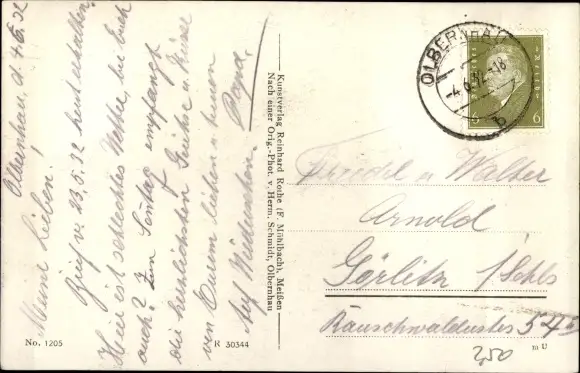 Olbernhau, d. 4.6.32
Meine Lieben!
Brief v. 23.5.32 heut erhalten.
Hier ist schlechtes Wetter, bei Euch
auch? Zum Sonntag empfangt
die herzlichsten Grüße u. Küsse
von Eurem lieben u. treuen
Auf Wiedersehen. Papa.
Kunstverlag Reinhard Rothe (F. Mühlbach), Meißen
Nach einer Orig.-Phot. v. Herm. Schmidt, Olbernhau
No. 1205
R 30344
OLBERNHAU
-4.6.32-18
b
6 6
Friedel u. Walter
Arnold
Görlitz /Schls
Rauschwalderstr 54
m U
250